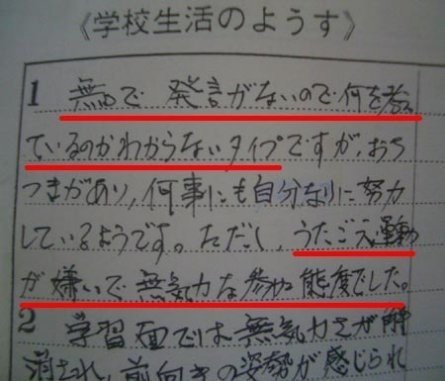 《学校生活のようす》
1 無口で 発言がないので何を考え
ているのかわからないタイプですが、おち
つきがあり、何事にも自分なりに努力
しているようです。ただし、うたごえ運動
が嫌いで無気力な参加態度でした。
2 学習面では無気力さが解
消され、前向きの姿勢が感じられ